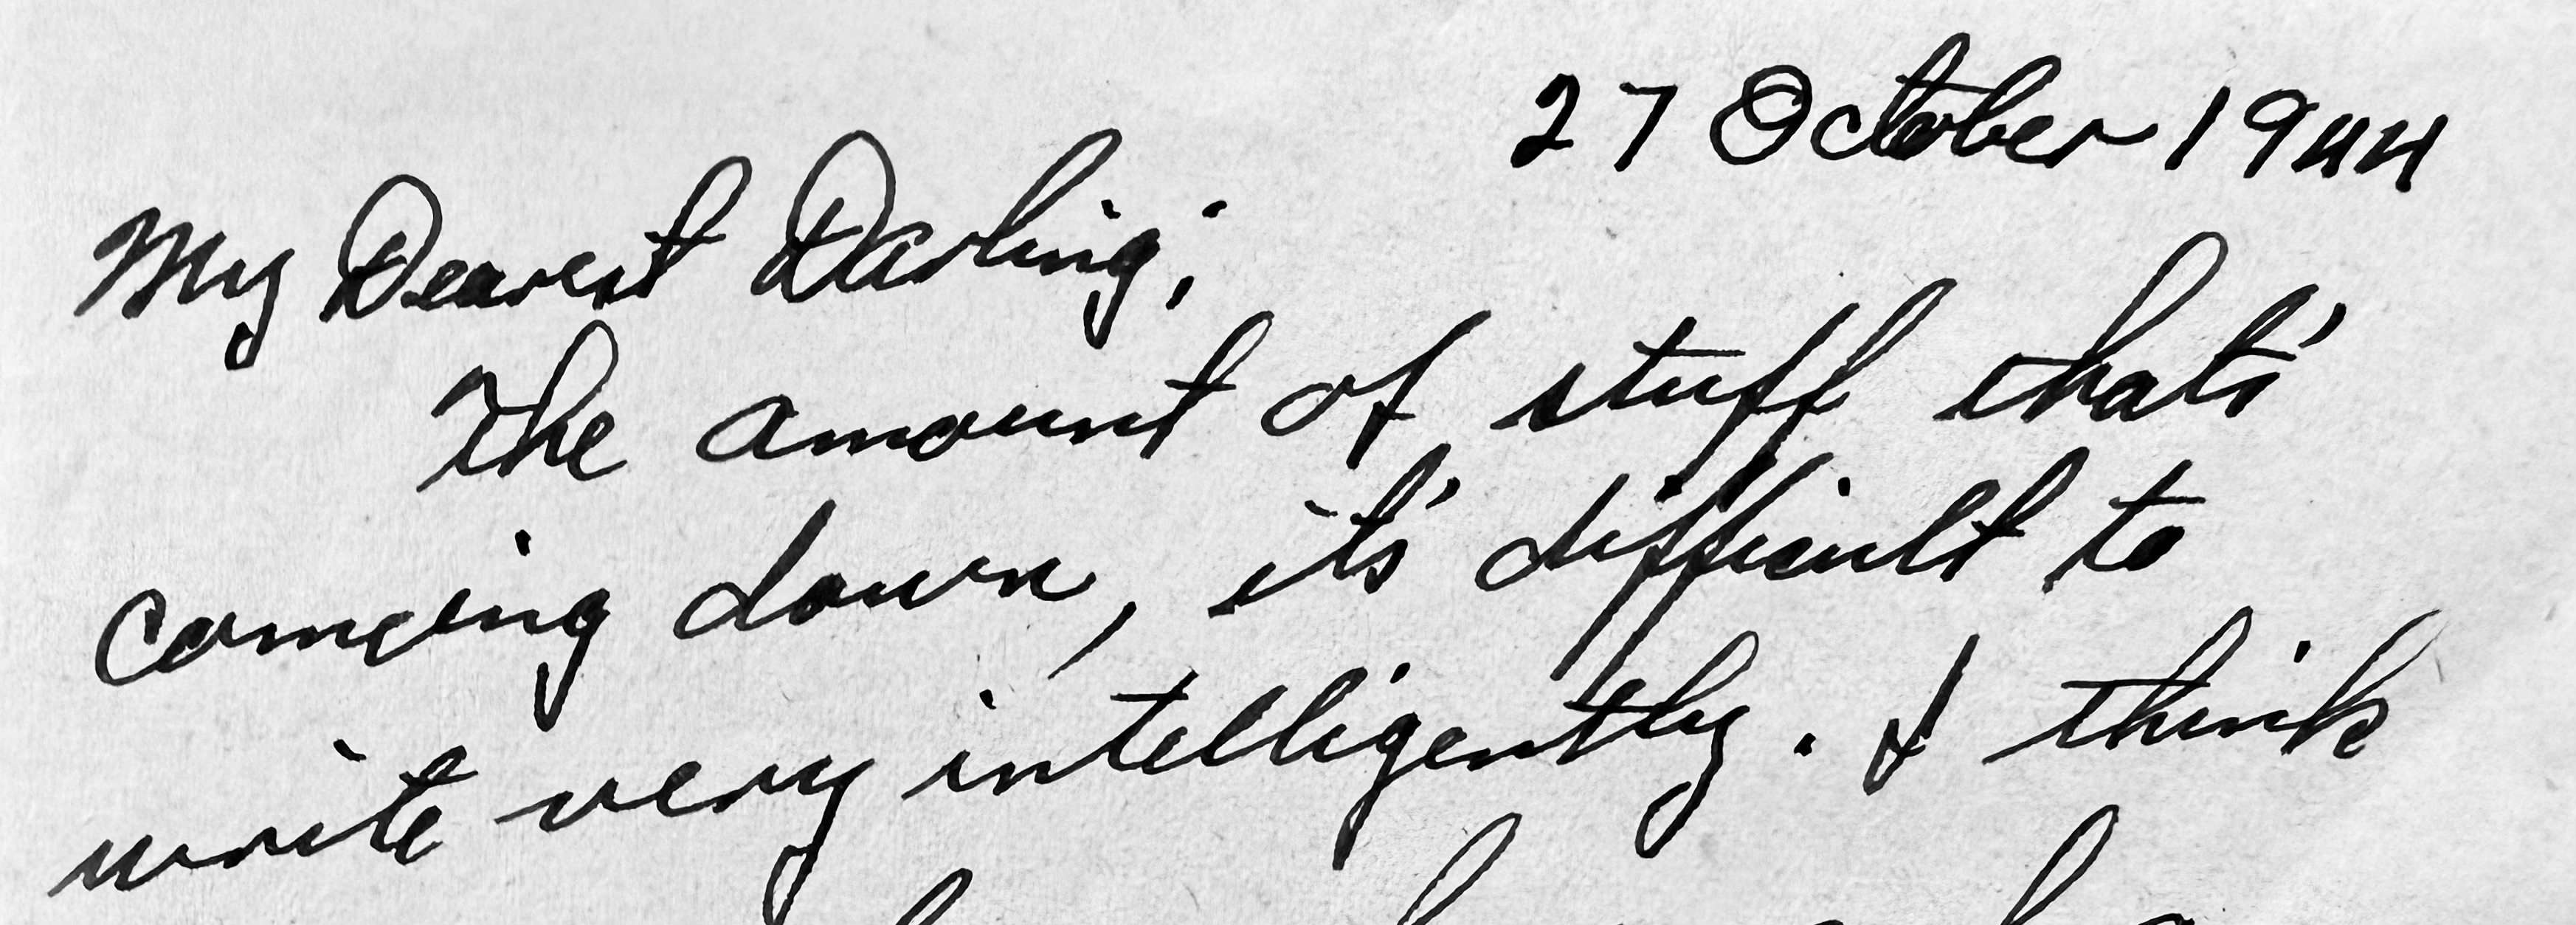 27 October 1944
My Dearest Darling;
The amount of stuff that's
comeing down, it's difficult to
write very intelligently. I think